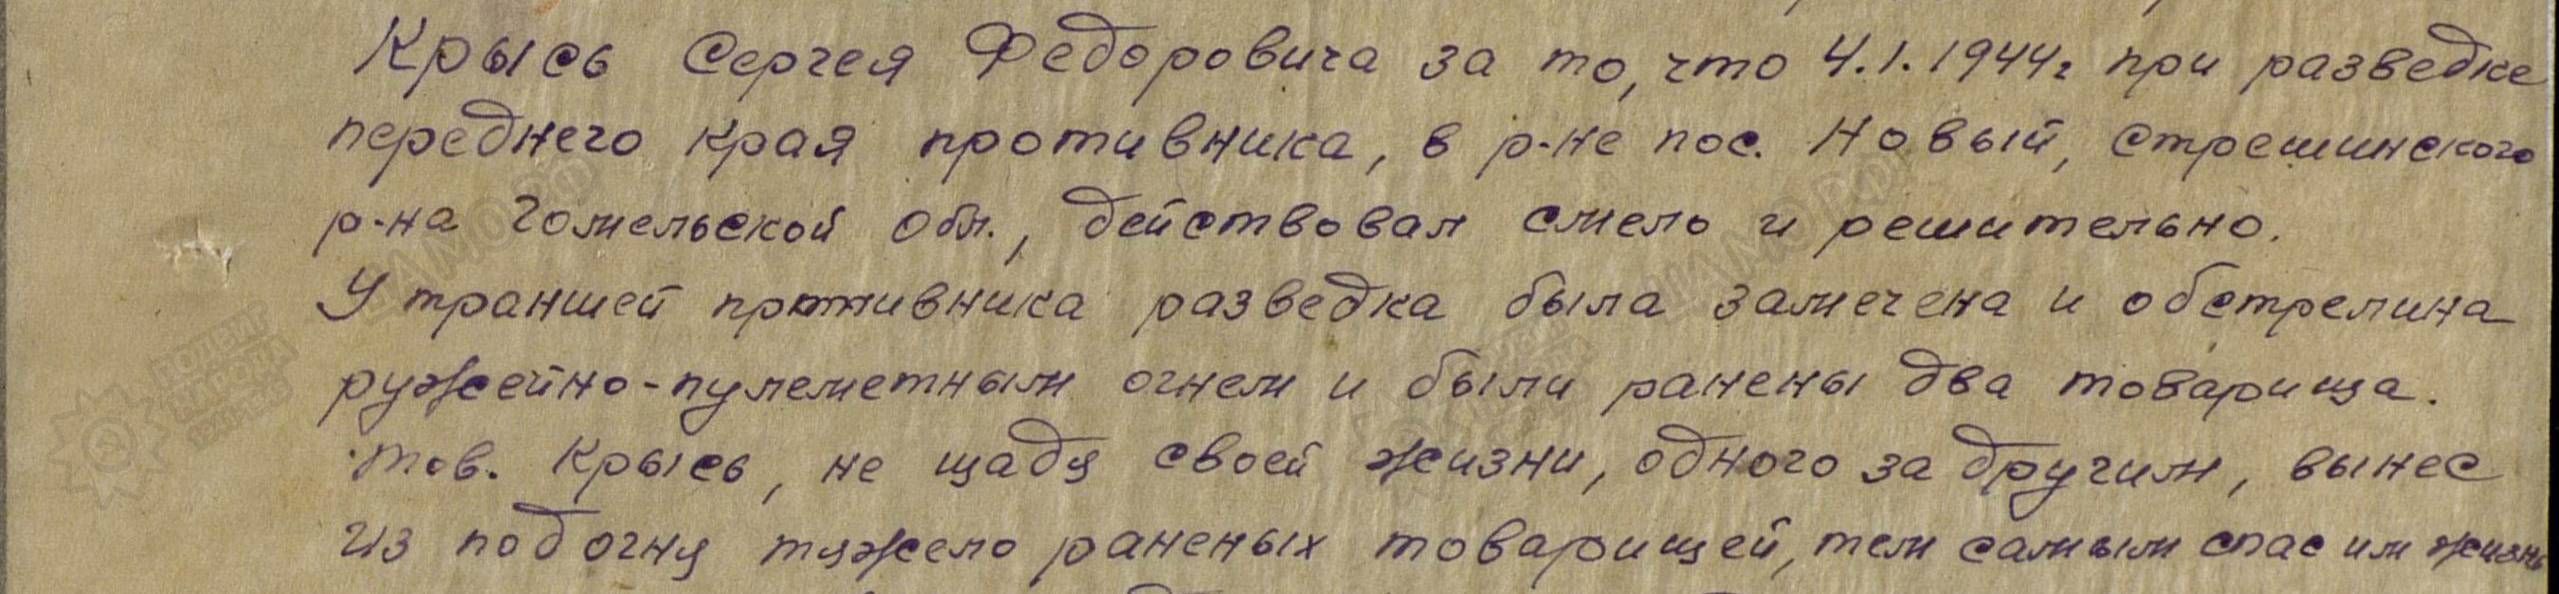 Крысь Сергея Федоровича за то, что 4.1.1944г при разведке
переднего края противника, в р-не пос. Новый, Стрешинского
р-на Гомельской обл., действовал смело и решительно.
У траншей противника разведка была замечена и обстрелина
ружейно-пулеметным огнем и были ранены два товарища.
тов. Крысь, не щадя своей жизни, одного за другим, вынес
из под огня тяжело раненых товарищей, тем самым спас им жизнь